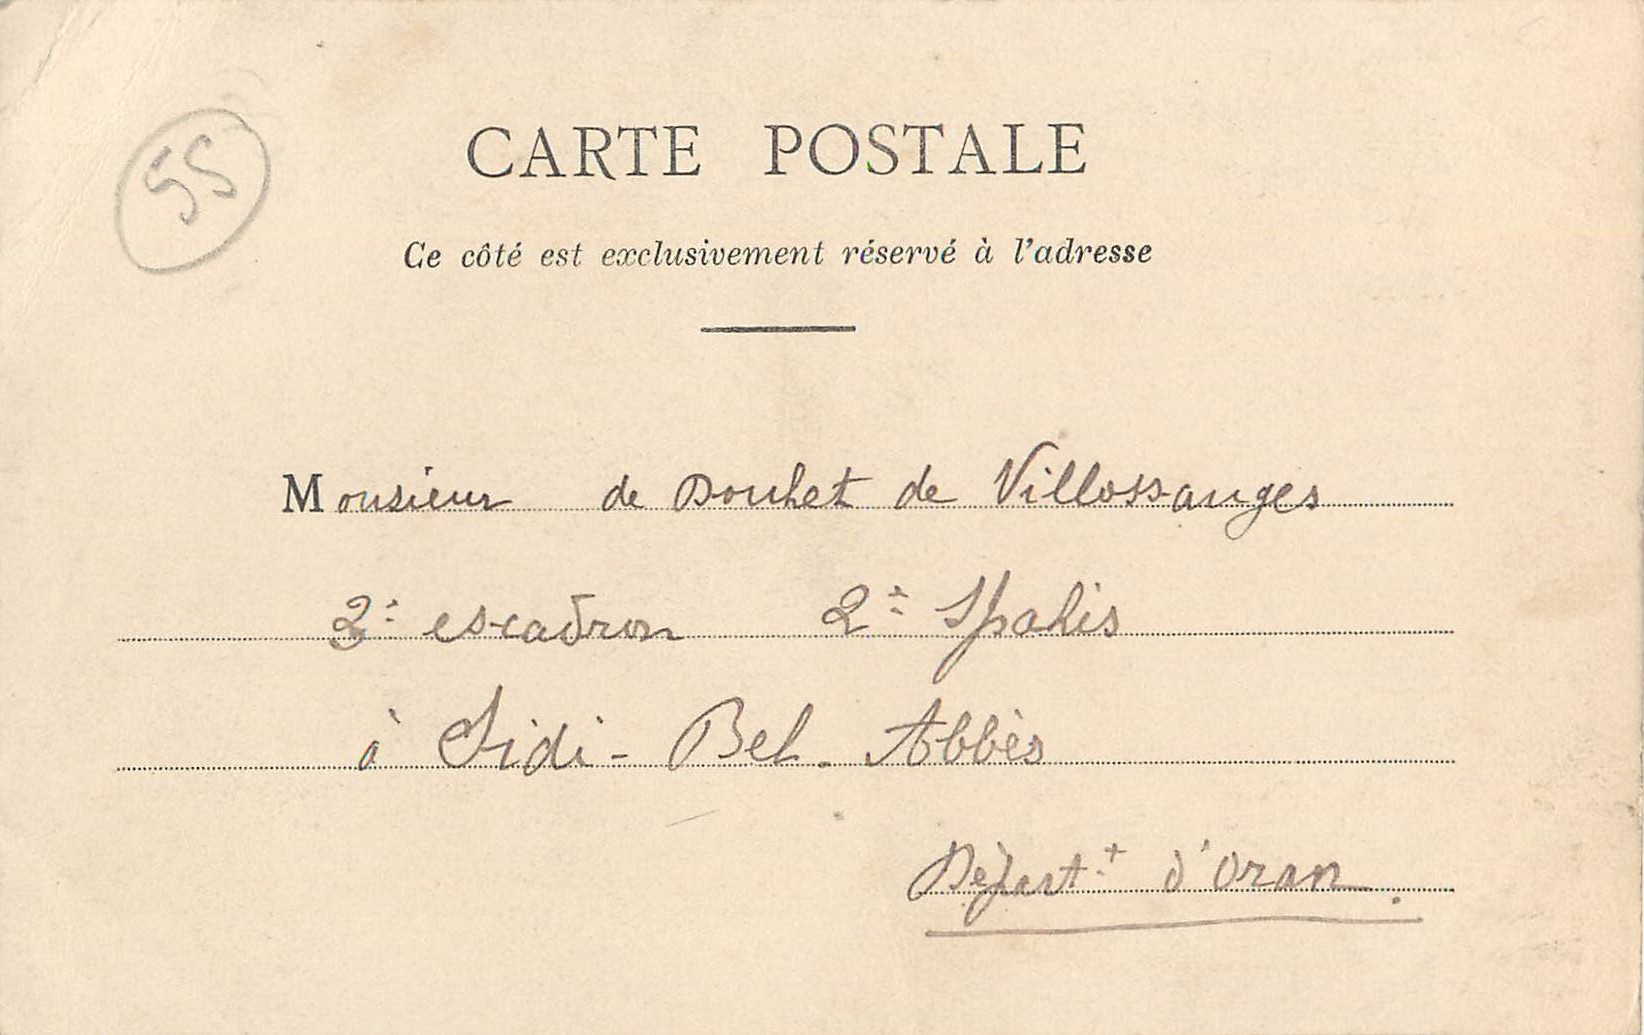 55
CARTE POSTALE
Ce côté est exclusivement réservé à l'adresse
Monsieur de Douhet de Villossanges
2e escadron 2e Spahis
à Sidi-Bel-Abbès
Départt d'Oran.